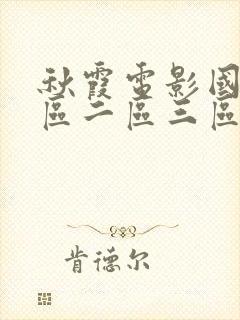 秋霞電影國
區二區三區
肯德尔